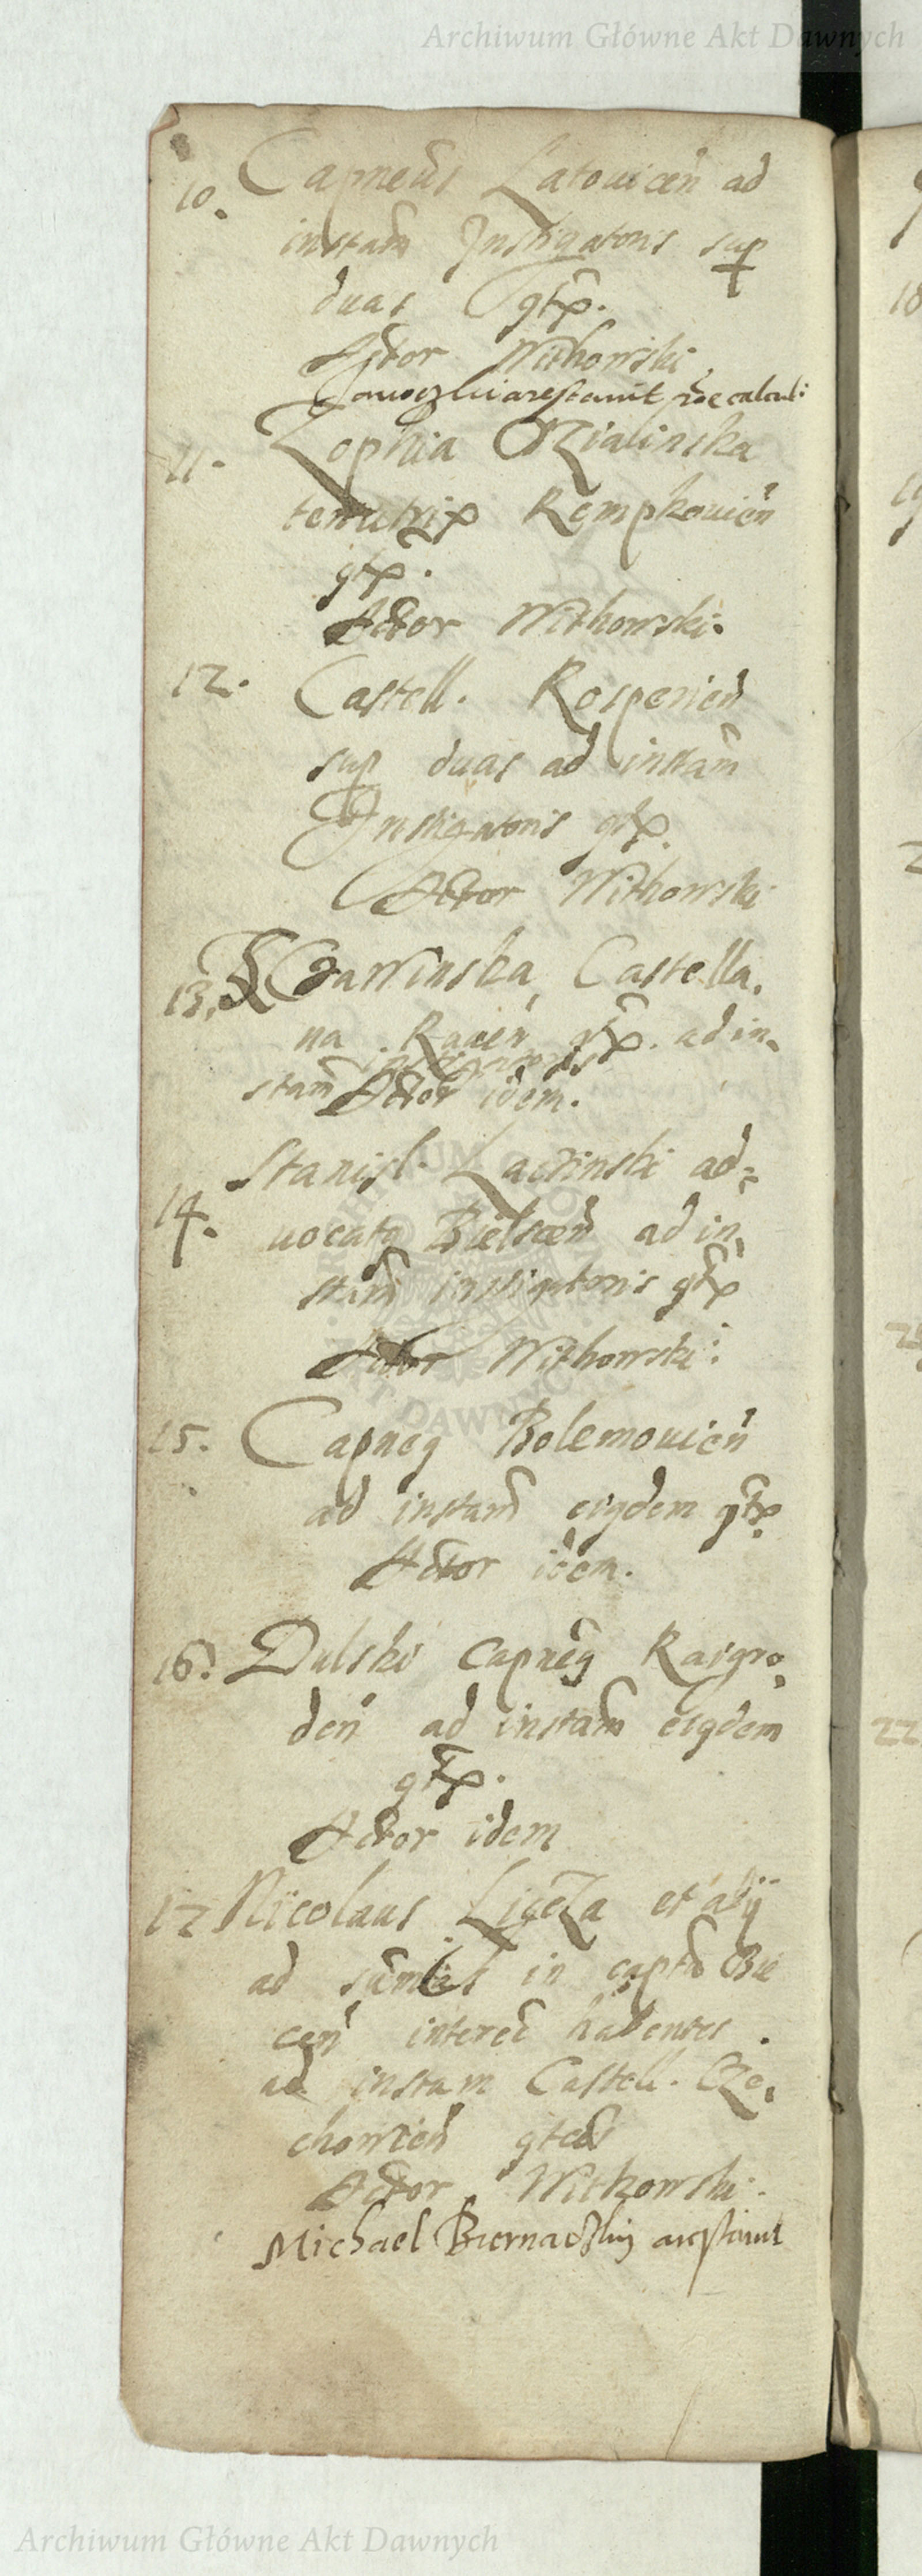 Archiwum Główne Akt Dawnych
10. Capneus Latouicen ad
instam Instigatoris sup
duas gtx.
Actor Withowski
arestauit
11. Zophia Dzialinska
tenutrix Rempkouien
gtx.
Actor Withowski.
12. Castell. Rosperien
sup duas ad instam
Instigatoris gtx.
Actor Withowski
13. Gawinska Castella,
na Racien gtx. ad in,
instigatoris
stam Actor idem.
14. Stanisl. Lacrinski ad,
uocatq Bielscen ad in,
stam instigatoris gtx
Actor Withowski.
15. Capneq Bolemouien
ad instam eiqdem gtx.
Actor idem.
16. Dulski Capneq Raigro,
den ad instam eiqdem
gtx.
Actor idem
17 Nicolaus Ligeza et alij
ad in captu Bie
cen interee habentes.
ad instam Castell. Cze,
chowien
Actor Witkowski.
Michael Biernadzkij arestauit
18
22
Archiwum Główne Akt Dawnych